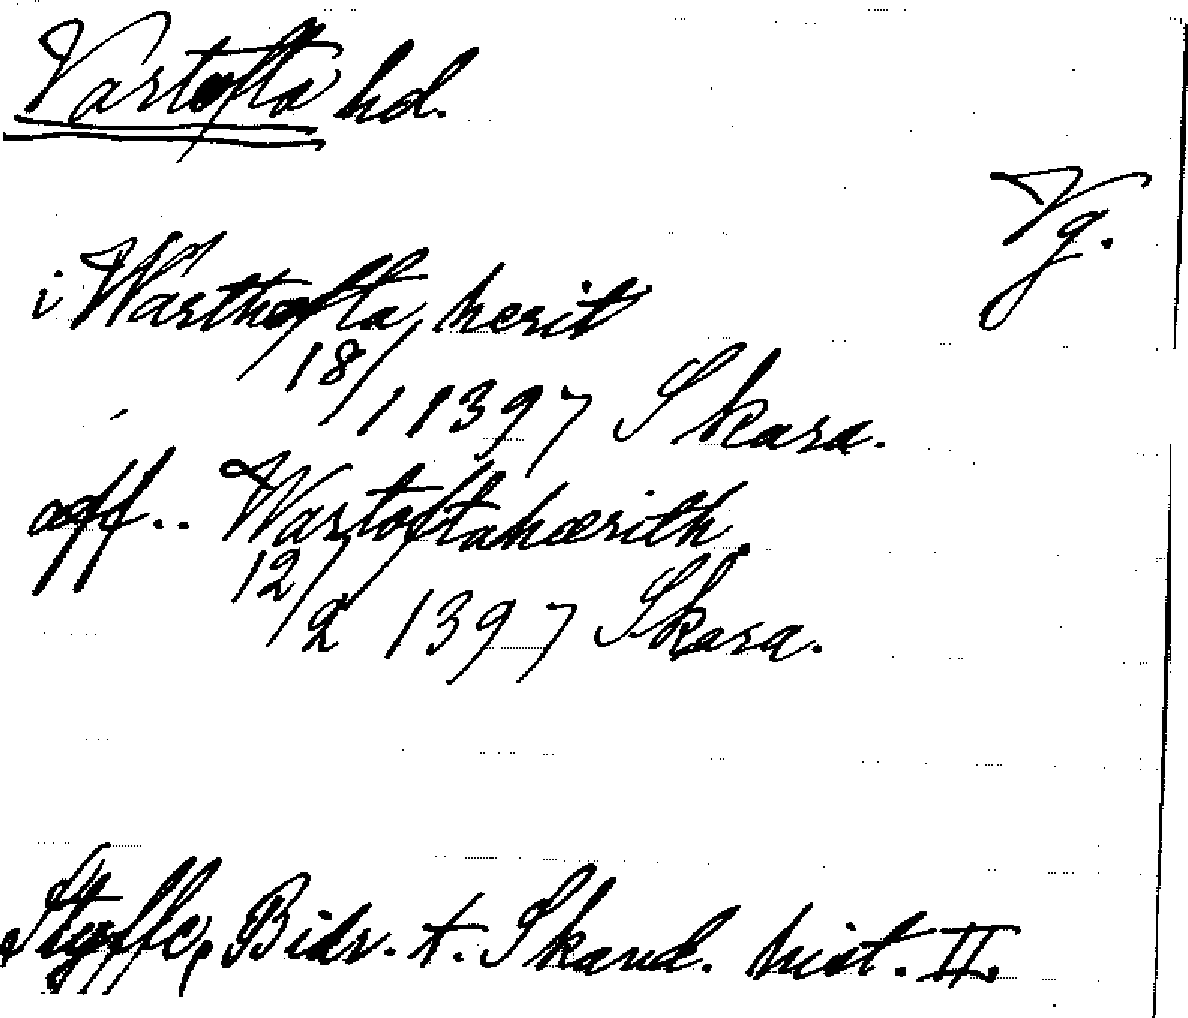 Vartofta hd.
Vg.
i Warthofta herit
18/1 1397 Skara.
aff .. Wartoftahærith
12/2 1397 Skara.
Styffe, Bidr. t. Skand. hist. II.